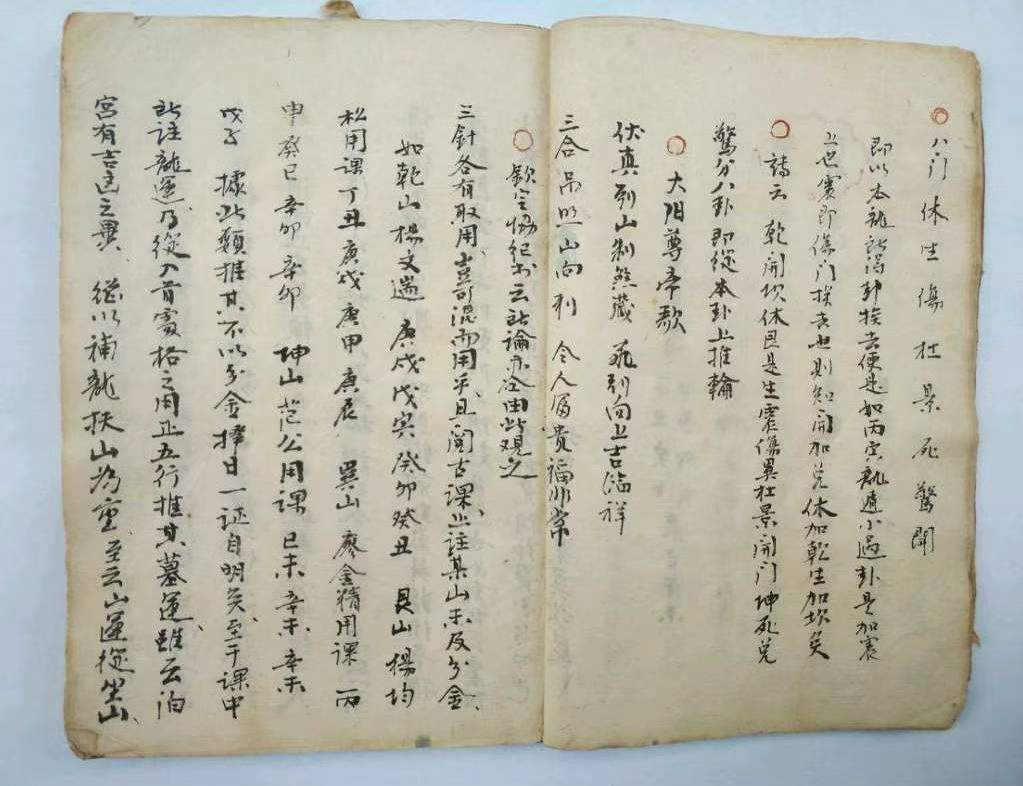 八门 休生傷杜景死驚開
即以本龍所泊卦挨去便是如丙寅龍遁小過卦是加震
上也震即傷门挨去也則知開加兑休加乾生加坎矣
詩云 乾開坎休艮是生震傷巽杜景開門坤死兑
驚分八卦即從本卦上推輪
太阳尊帝歌
伏真到山制煞藏 飛到向上吉临祥
三合吊照山向利 令人富贵福非常
欽定協纪书云 所論亦全由此观之
三針各有取用、豈可混而用乎、且閲古課止註某山未及分金、
如乾山楊文遄 庚戌戊寅癸卯癸丑 艮山楊均
松用課丁丑庚戌庚申庚辰 巽山 廖金精用課 丙
申癸巳辛卯辛卯 坤山范公用課 已未辛未辛未
戊子 據此類推其不以分金擇日一证自明矣、至于課中
所註龍運乃從入首處格之用正五行推其墓運、雖云泊
宮有吉凶之異、 總以補龍扶山為重、至云山運從坐山、